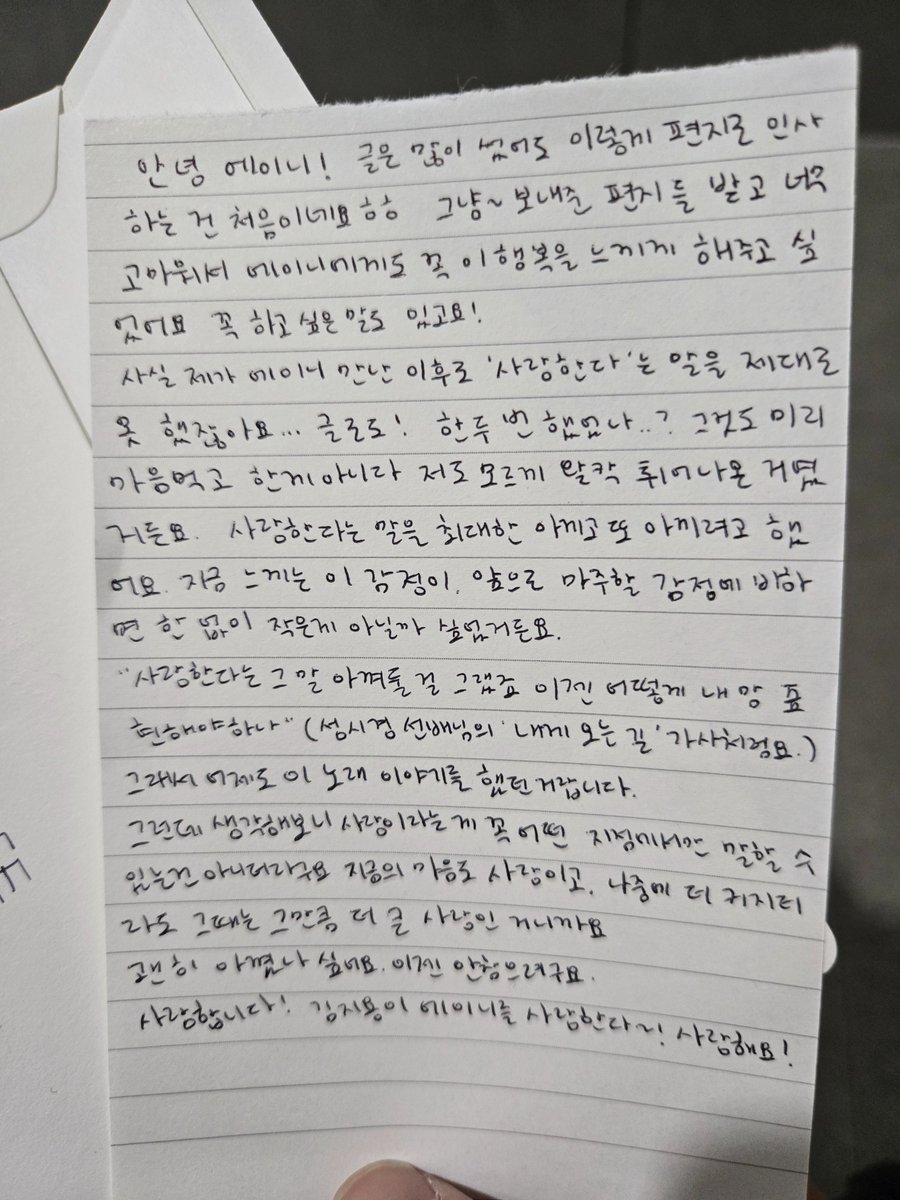 안녕 에이니! 글은 많이 썼어도 이렇게 편지로 인사
하는 건 처음이네요 ㅎㅎ 그냥~ 보내준 편지들 받고 너무
고마워서 에이니에게도 꼭 이 행복을 느끼게 해주고 싶
었어요 꼭 하고 싶은 말도 있고요!
사실 제가 에이니 만난 이후로 '사랑한다'는 말을 제대로
못 했잖아요... 글로도! 한두 번 했었나..? 그것도 미리
마음먹고 한게 아니라 저도 모르게 왈칵 튀어나온 거였
거든요. 사랑한다는 말을 최대한 아끼고 또 아끼려고 했
어요. 지금 느끼는 이 감정이, 앞으로 마주할 감정에 비하
면 한 없이 작은게 아닐까 싶었거든요.
"사랑한다는 그 말 아껴둘 걸 그랬죠 이젠 어떻게 내 맘 표
현해야하나" (성시경 선배님의 '내게 오는 길' 가사처럼요.)
그래서 어제도 이 노래 이야기를 했던거랍니다.
그런데 생각해보니 사랑이라는게 꼭 어떤 지점에서만 말할 수
있는건 아니더라구요 지금의 마음도 사랑이고, 나중에 더 커지더
라도 그때는 그만큼 더 큰 사랑인 거니까요
괜히 아꼈나 싶어요. 이젠 안참으려구요.
사랑합니다! 김지용이 에이니를 사랑한다~! 사랑해요!